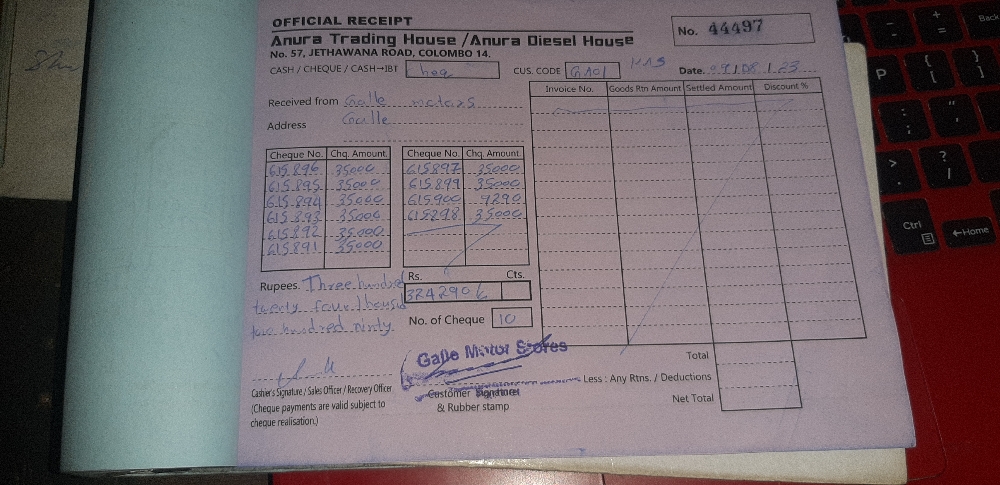 OFFICIAL RECEIPT
No. 44497
Anura Trading House / Anura Diesel House
No. 57, JETHAWANA ROAD, COLOMBO 14.
CASH / CHEQUE / CASH→IBT
CUS. CODE GA01
Date.
Received from Galle motors
Address Galle
Invoice No. Goods Rtn Amount Settled Amount Discount %
Cheque No. Chq. Amount. Cheque No. Chq. Amount.
615896 35000 615897 35000
615895 35000 615899 35000
615894 35000 615900 9290
615893 35000 615898 35000
615892 35000
615891 35000
Rs. Cts.
Rupees. Three hundred
324290
twenty four thousand
two hundred ninty.
No. of Cheque 10
Galle Motor Stores
Cashier's Signature / Sales Officer / Recovery Officer
(Cheque payments are valid subject to
cheque realisation.)
Customer Signature
& Rubber stamp
Total
Less : Any Rtns. / Deductions
Net Total
P
Ctrl
←Home
Back